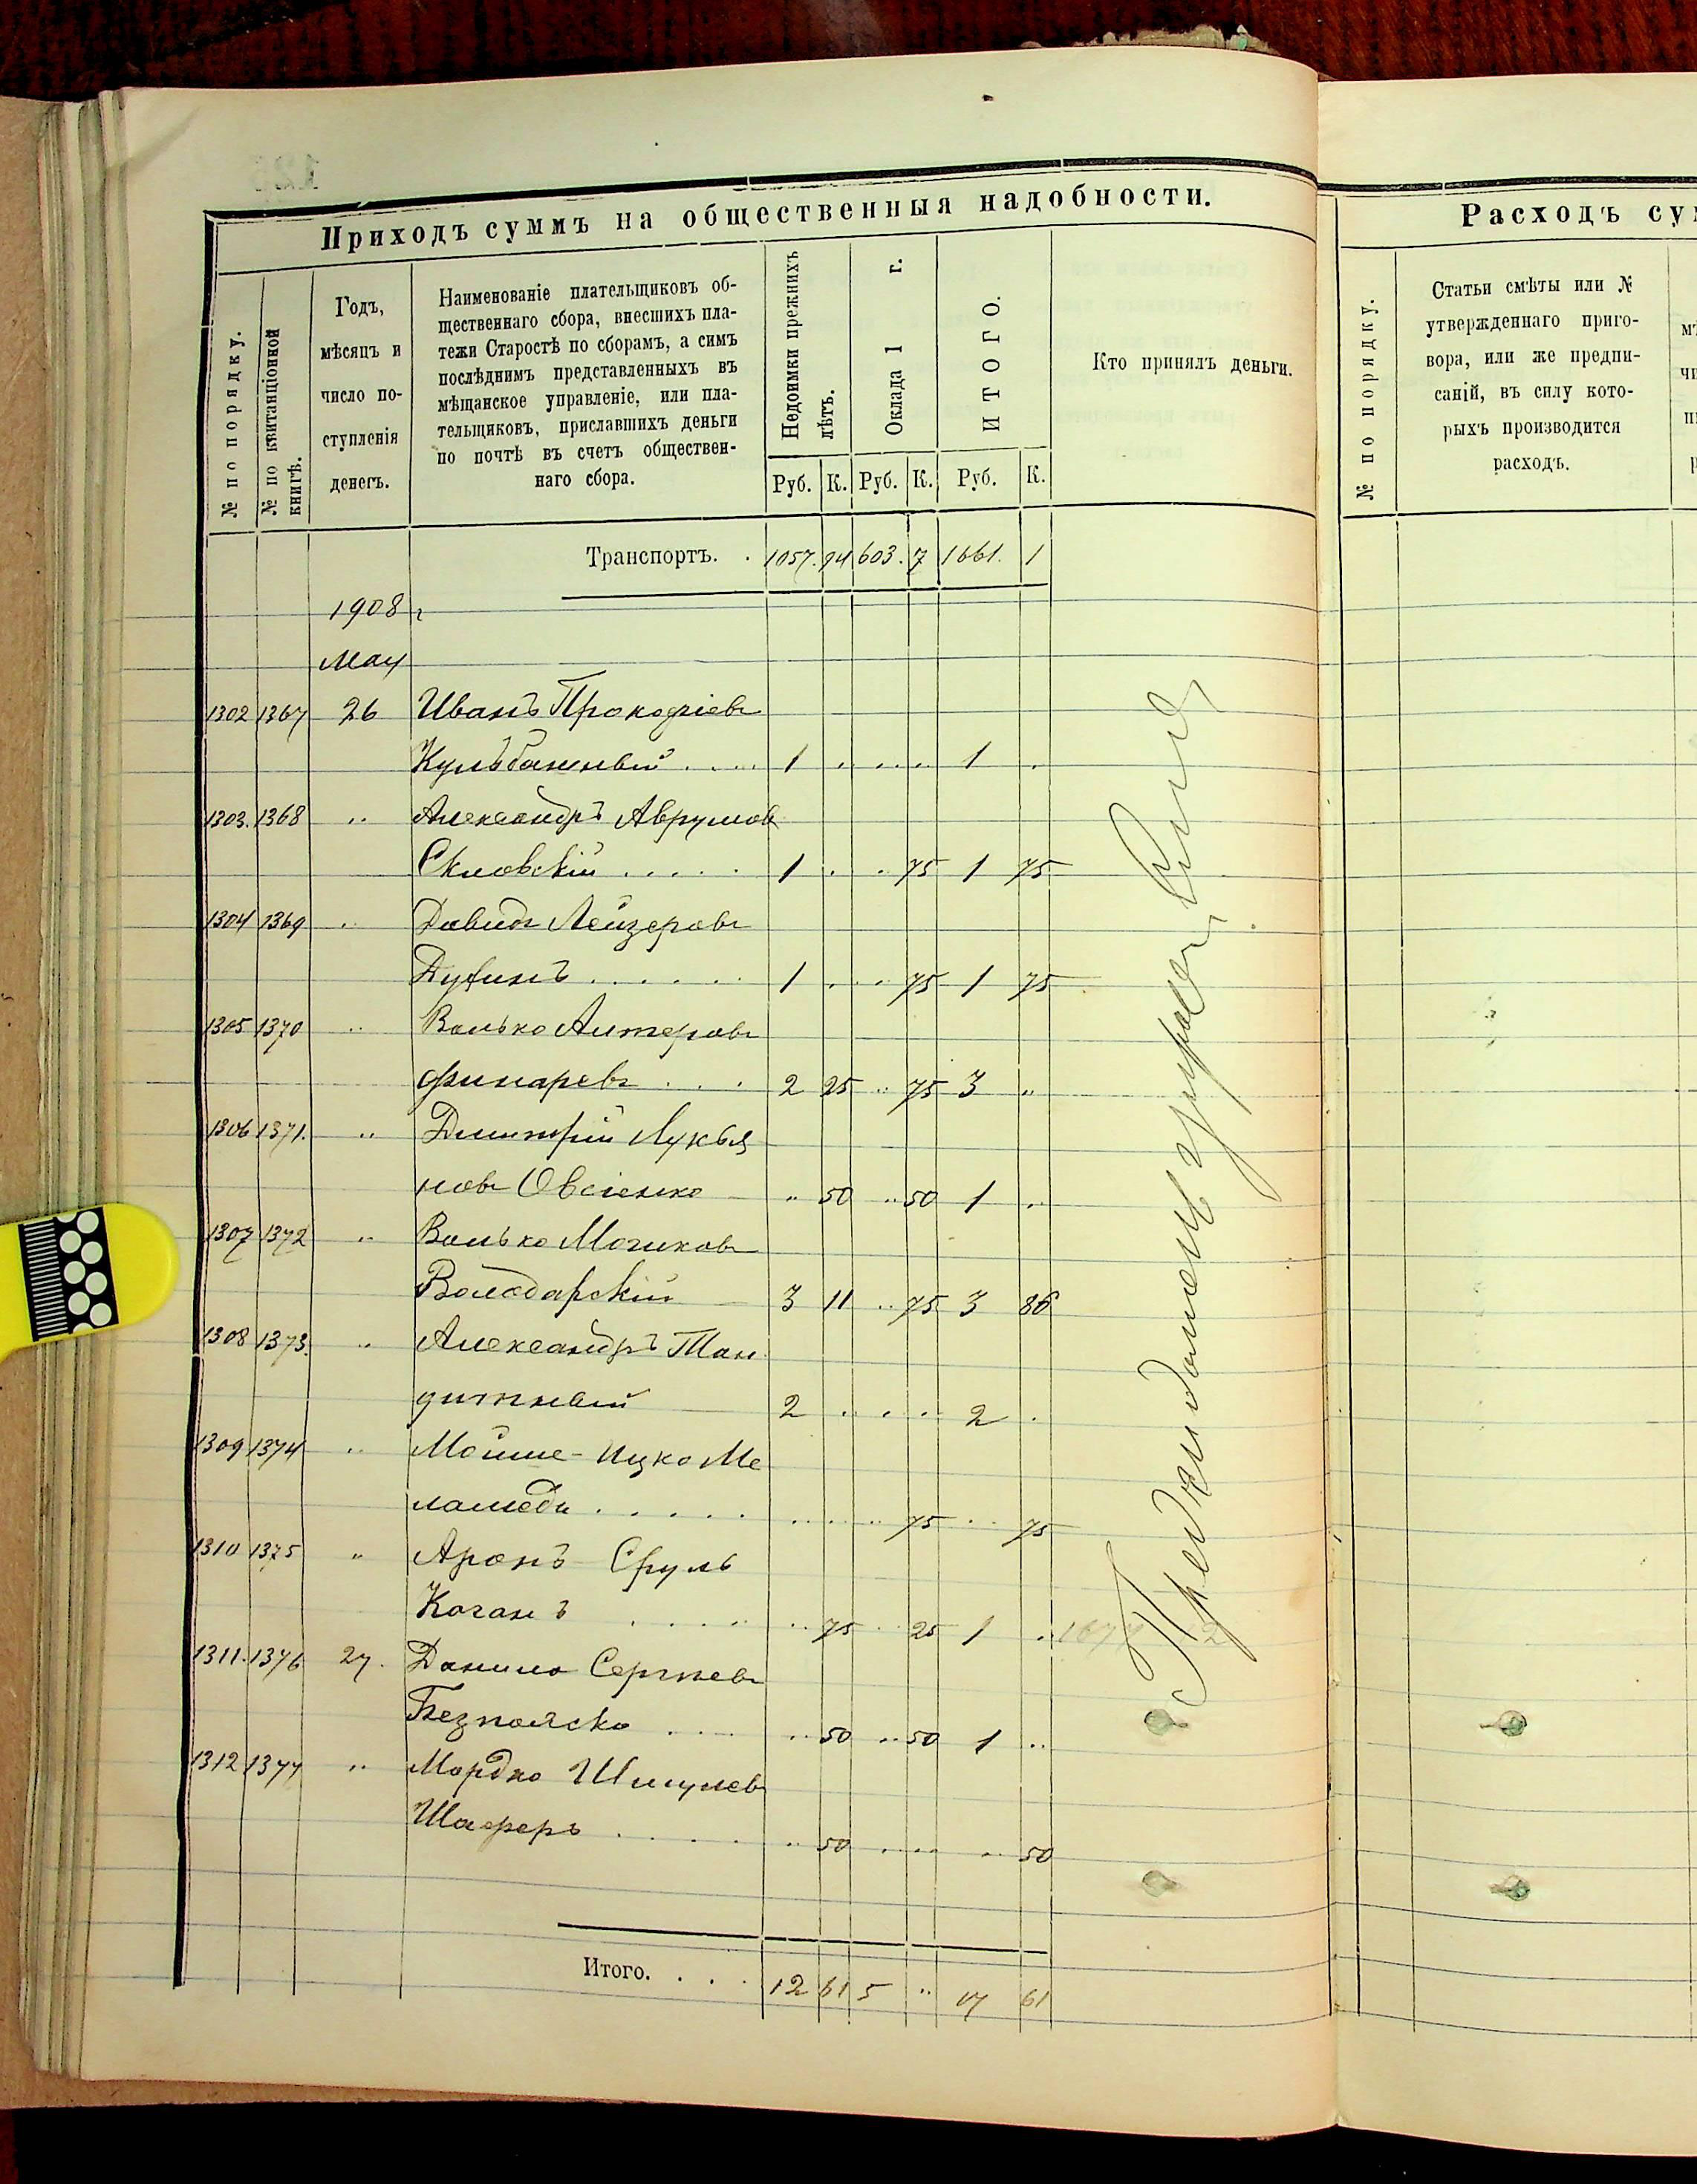 Приходъ суммъ на общественныя надобности.
№ по порядку.
№ по квитанціонной книгѣ.
Годъ,
мѣсяцъ и
число по-
ступленія
денегъ.
Наименованіе плательщиковъ об-
щественнаго сбора, внесшихъ пла-
тежи Старостѣ по сборамъ, а симъ
послѣднимъ представленныхъ въ
мѣщанское управленіе, или пла-
тельщиковъ, приславшихъ деньги
по почтѣ въ счетъ обществен-
наго сбора.
Недоимки прежнихъ
лѣтъ.
Оклада 1 г.
ИТОГО.
Руб. К. Руб. К. Руб. К.
Кто принялъ деньги.
Транспортъ. . 1057. 94 603. 7 1661. 1
1908 г
Мая
1302 1367 26 Иванъ Прокофіевъ
Кульбашный . . . . 1 . . . . 1 .
1303. 1368 " Александръ Аврумовъ
. . . . . 1 . . 75 1 75
1304 1369 . Давидъ Лейзеровъ
. . . . . . 1 . . . 75 1 75
1305 1370 " Волько Алтеровъ
. . . 2 25 " 75 3 "
1306 1371. " Дмитрій Лукья
новъ Овсіенко " 50 " 50 1 .
1307 1372 " Волько
Володарскій 3 11 " 75 3 86
1308 1373. " Александръ Тан
дитный 2 . . . . 2 .
1309 1374 " Мойше-Ицко Ме
ламедъ . . . . . . . . . 75 . . 75
1310 1375 " Аронъ Сруль
Коганъ . . . . " 75 . . 25 1 .
1311. 1376 27. Данило Сергѣевъ
Безпояско . . . " 50 " 50 1 "
1312 1377 " Мордко Шмулевъ
Шаферъ . . . . . " 50 . . . . " 50
Итого. . . . 12 61 5 " 17 61
Расходъ су
№ по порядку.
Статьи смѣты или №
утвержденнаго приго-
вора, или же предпи-
саній, въ силу кото-
рыхъ производится
расходъ.